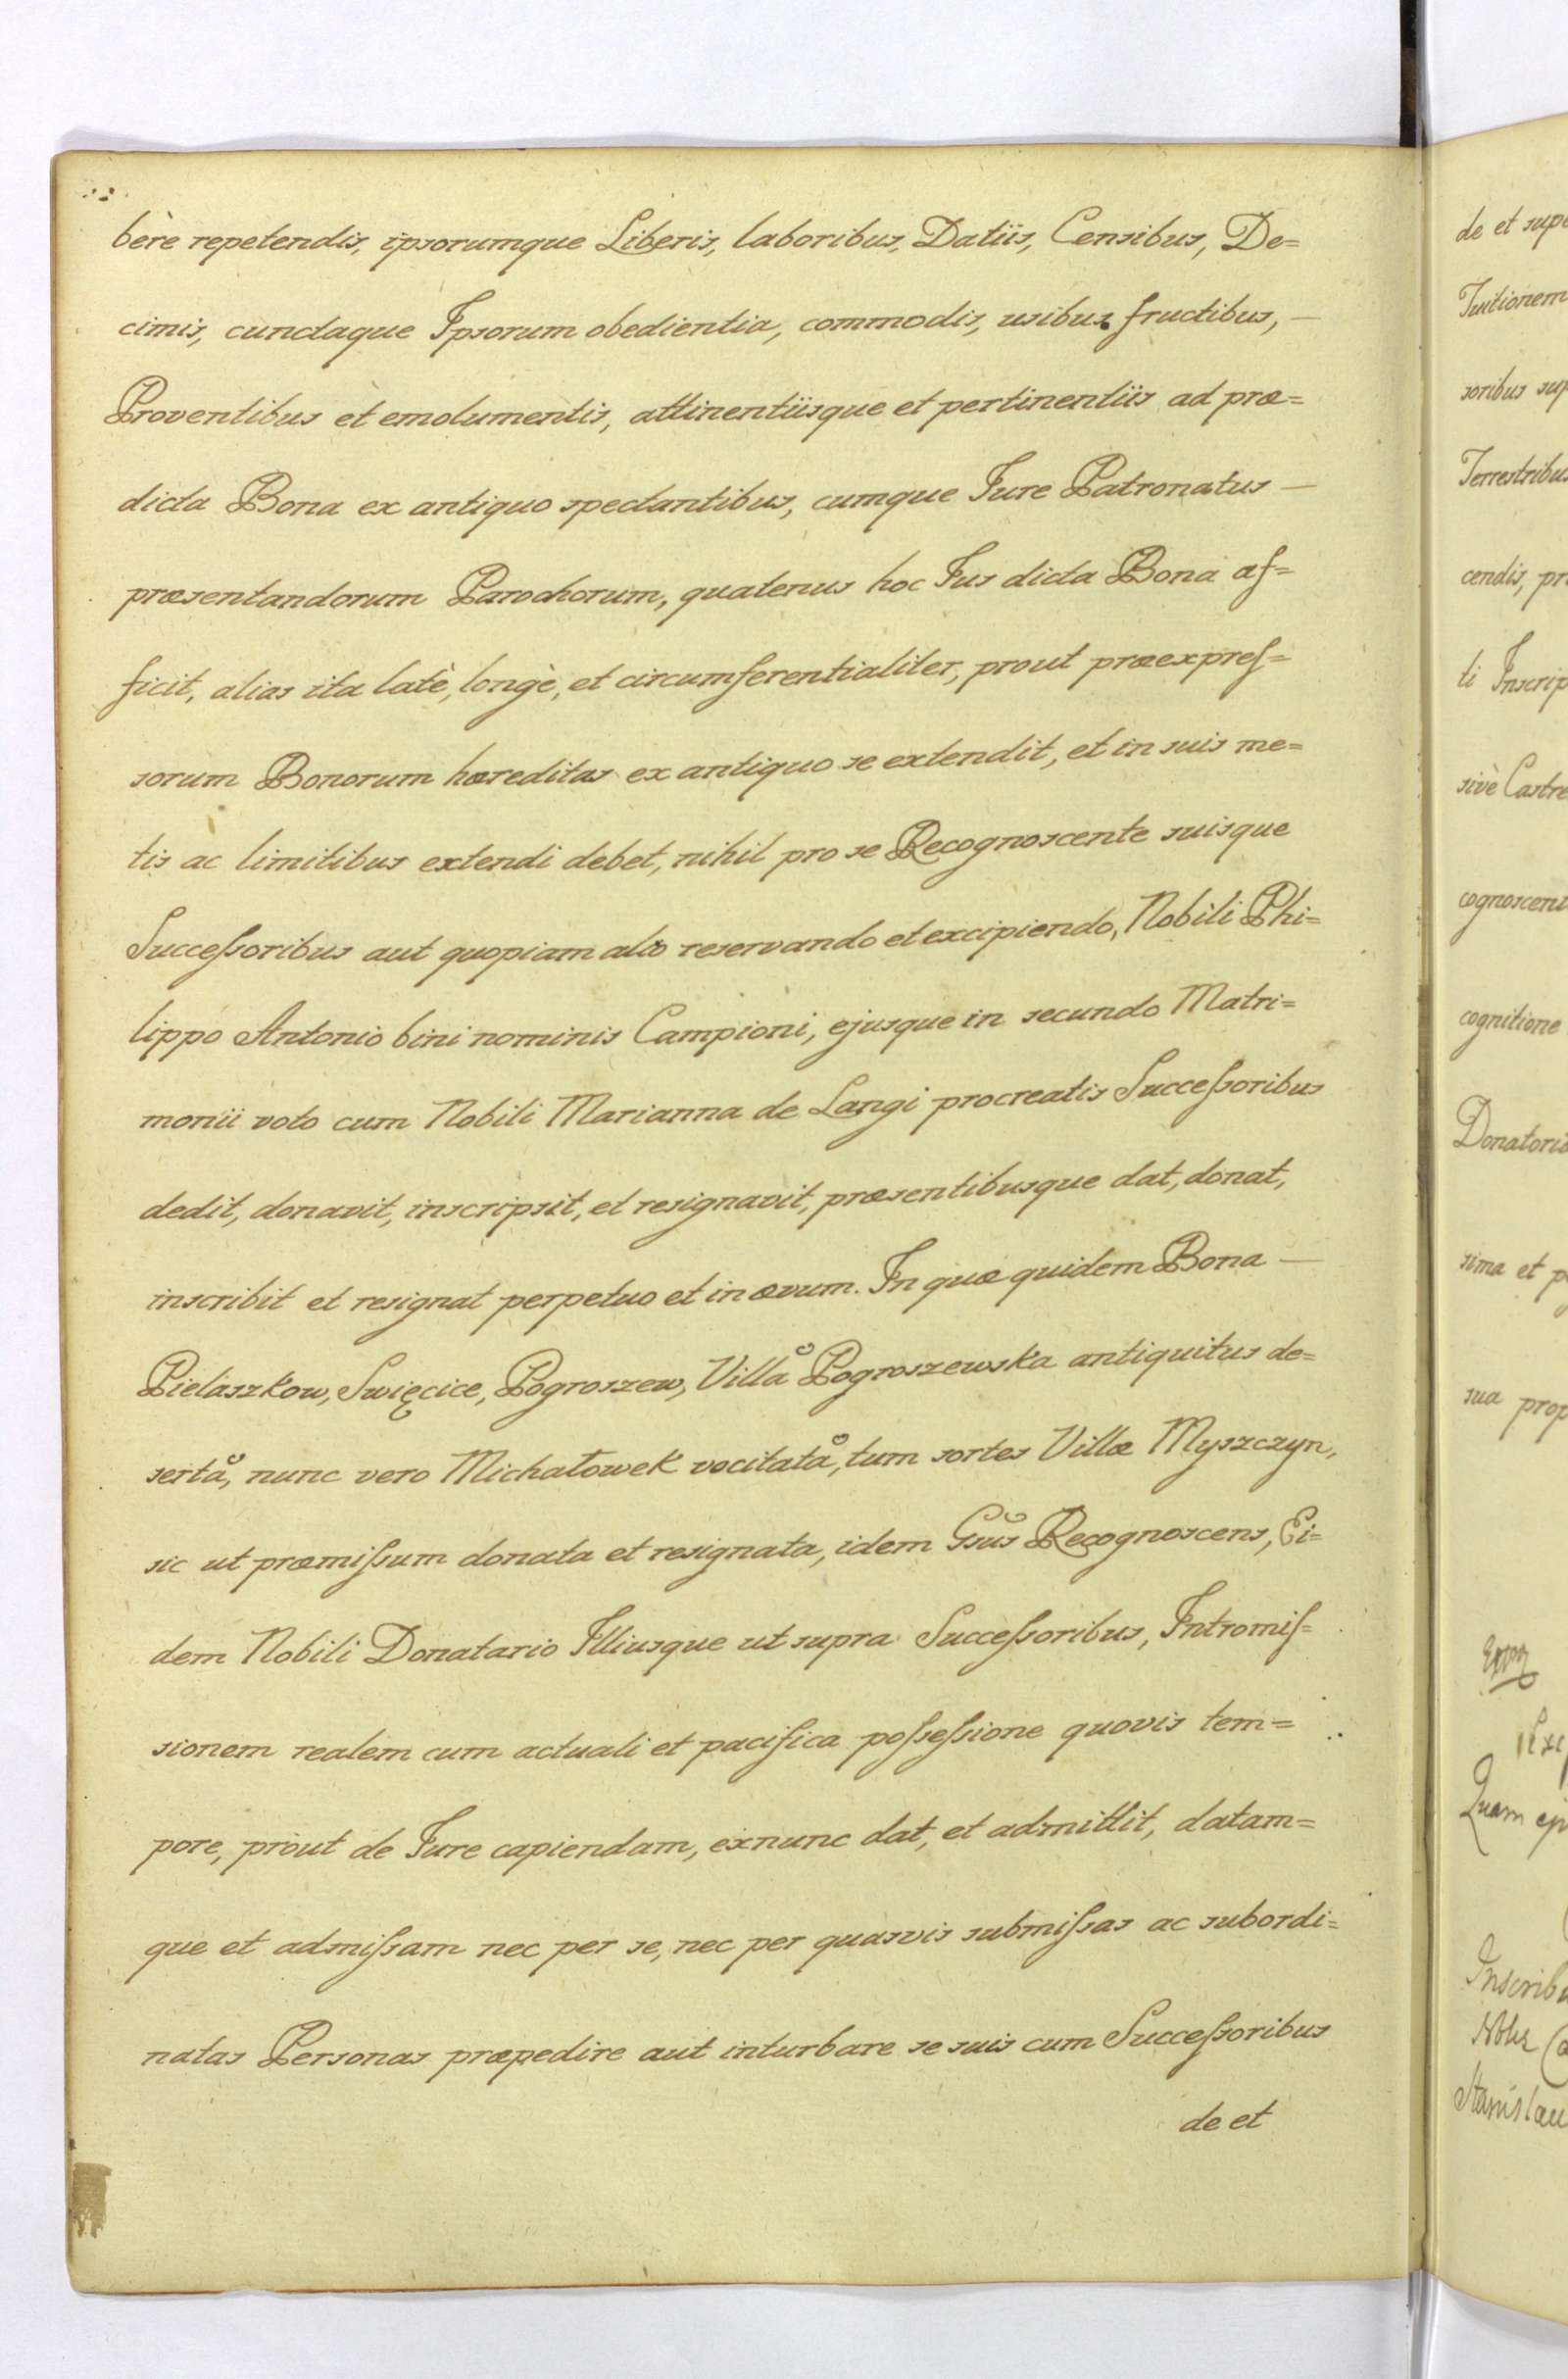 bère repetendis, ipsorumque Liberis, laboribus, Datiis, Censibus, De=
cimis, cunctaque Ipsorum obedientia, commodis, usibus fructibus, —
Proventibus et emolumentis, attinentiisque et pertinentiis ad præ=
dicta Bona ex antiquo spectantibus, cumque Jure Patronatus —
præsentandorum Parochorum, quatenus hoc Jus dicta Bona af=
ficit, alias ita latè, longè, et circumferentialiter, prout præexpreſ=
sorum Bonorum hæreditas ex antiquo se extendit, et in suis me=
tis ac limitibus extendi debet, nihil pro se Recognoscente suisque
Succeſsoribus aut quopiam alio reservando et excipiendo, Nobili Phi=
lippo Antonio bini nominis Campioni, ejusque in secundo Matri=
monii voto cum Nobili Marianna de Langi procreatis Succeſsoribus
dedit, donavit, inscripsit, et resignavit, præsentibusque dat, donat,
inscribit et resignat perpetuo et in ævum. In quæ quidem Bona —
Pielaszkow, Swięcice, Pogroszew, Villå Pogroszewska antiquitus de=
sertå, nunc vero Michałowek vocitatå, tum sortes Villæ Myszczyn,
sic ut præmiſsum donata et resignata, idem Gsũs Recognoscens, Ei=
dem Nobili Donatario Illiusque ut supra Succeſsoribus, Intromiſ=
sionem realem cum actuali et pacifica poſseſsione quovis tem=
pore, prout de Jure capiendam, exnunc dat, et admittit, datam=
que et admiſsam nec per se, nec per quasvis submiſsas ac subordi=
natas Personas præpedire aut inturbare se suis cum Succeſsoribus
de et
de et supe
Tuitionem
soribus sup
Terrestribus
cendis, pr
ti Inscrip
sivè Castre
cognoscen
cognitione
Donatorio
sima et p
sua prop
Quam ej
Inscrib
Stanislau